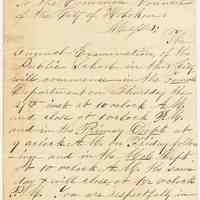 To the Common Council
of the City of Hoboken
The
Annual Examination of the
Public School in this City
will commence in the
Department on Thursday the
inst at 10 oclock A.M.
and close at 12 oclock P.M.
and in the Primary Dept at
9 oclock A.M. on Friday follow
ing and in the Dept
at 10 oclock A.M. the same
day & will close at 12 oclock
P.M. You are respectfully in